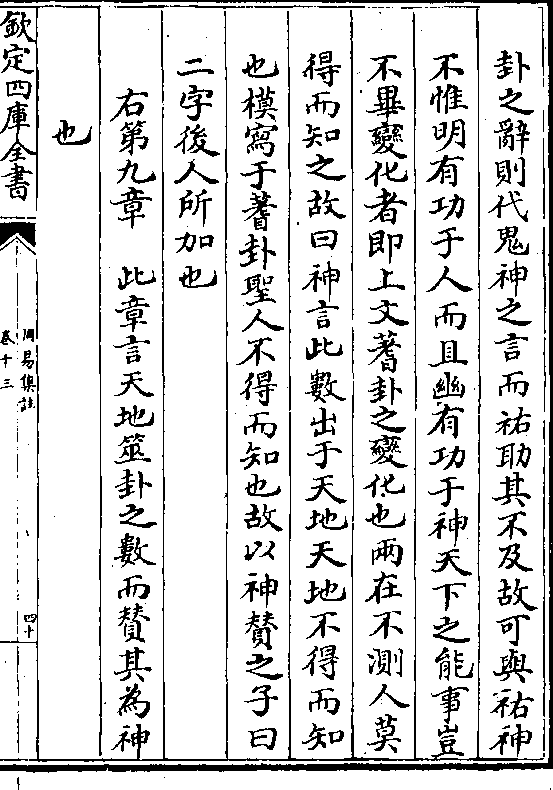 卦之辭則代鬼神之言而祐助其不及故可與祐神
不惟明有功于人而且幽有功于神天下之能事豈
不畢變化者即上文蓍卦之變化也兩在不測人莫
得而知之故曰神言此數出于天地天地不得而知
也模寫于蓍卦聖人不得而知也故以神贊之子曰
二字後人所加也
右第九章　此章言天地筮卦之數而贊其為神
也
欽定四庫全書
周易集註
卷十三
四十